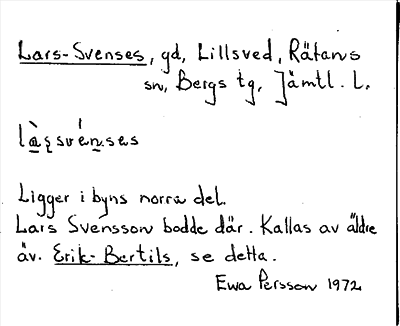 Lars-Svenses, gd, Lillsved, Rätans
sn, Bergs tg, Jämtl. L.
Ligger i byns norra del.
Lars Svensson bodde där. Kallas av äldre
äv. Erik-Bertils, se detta.
Ewa Persson 1972